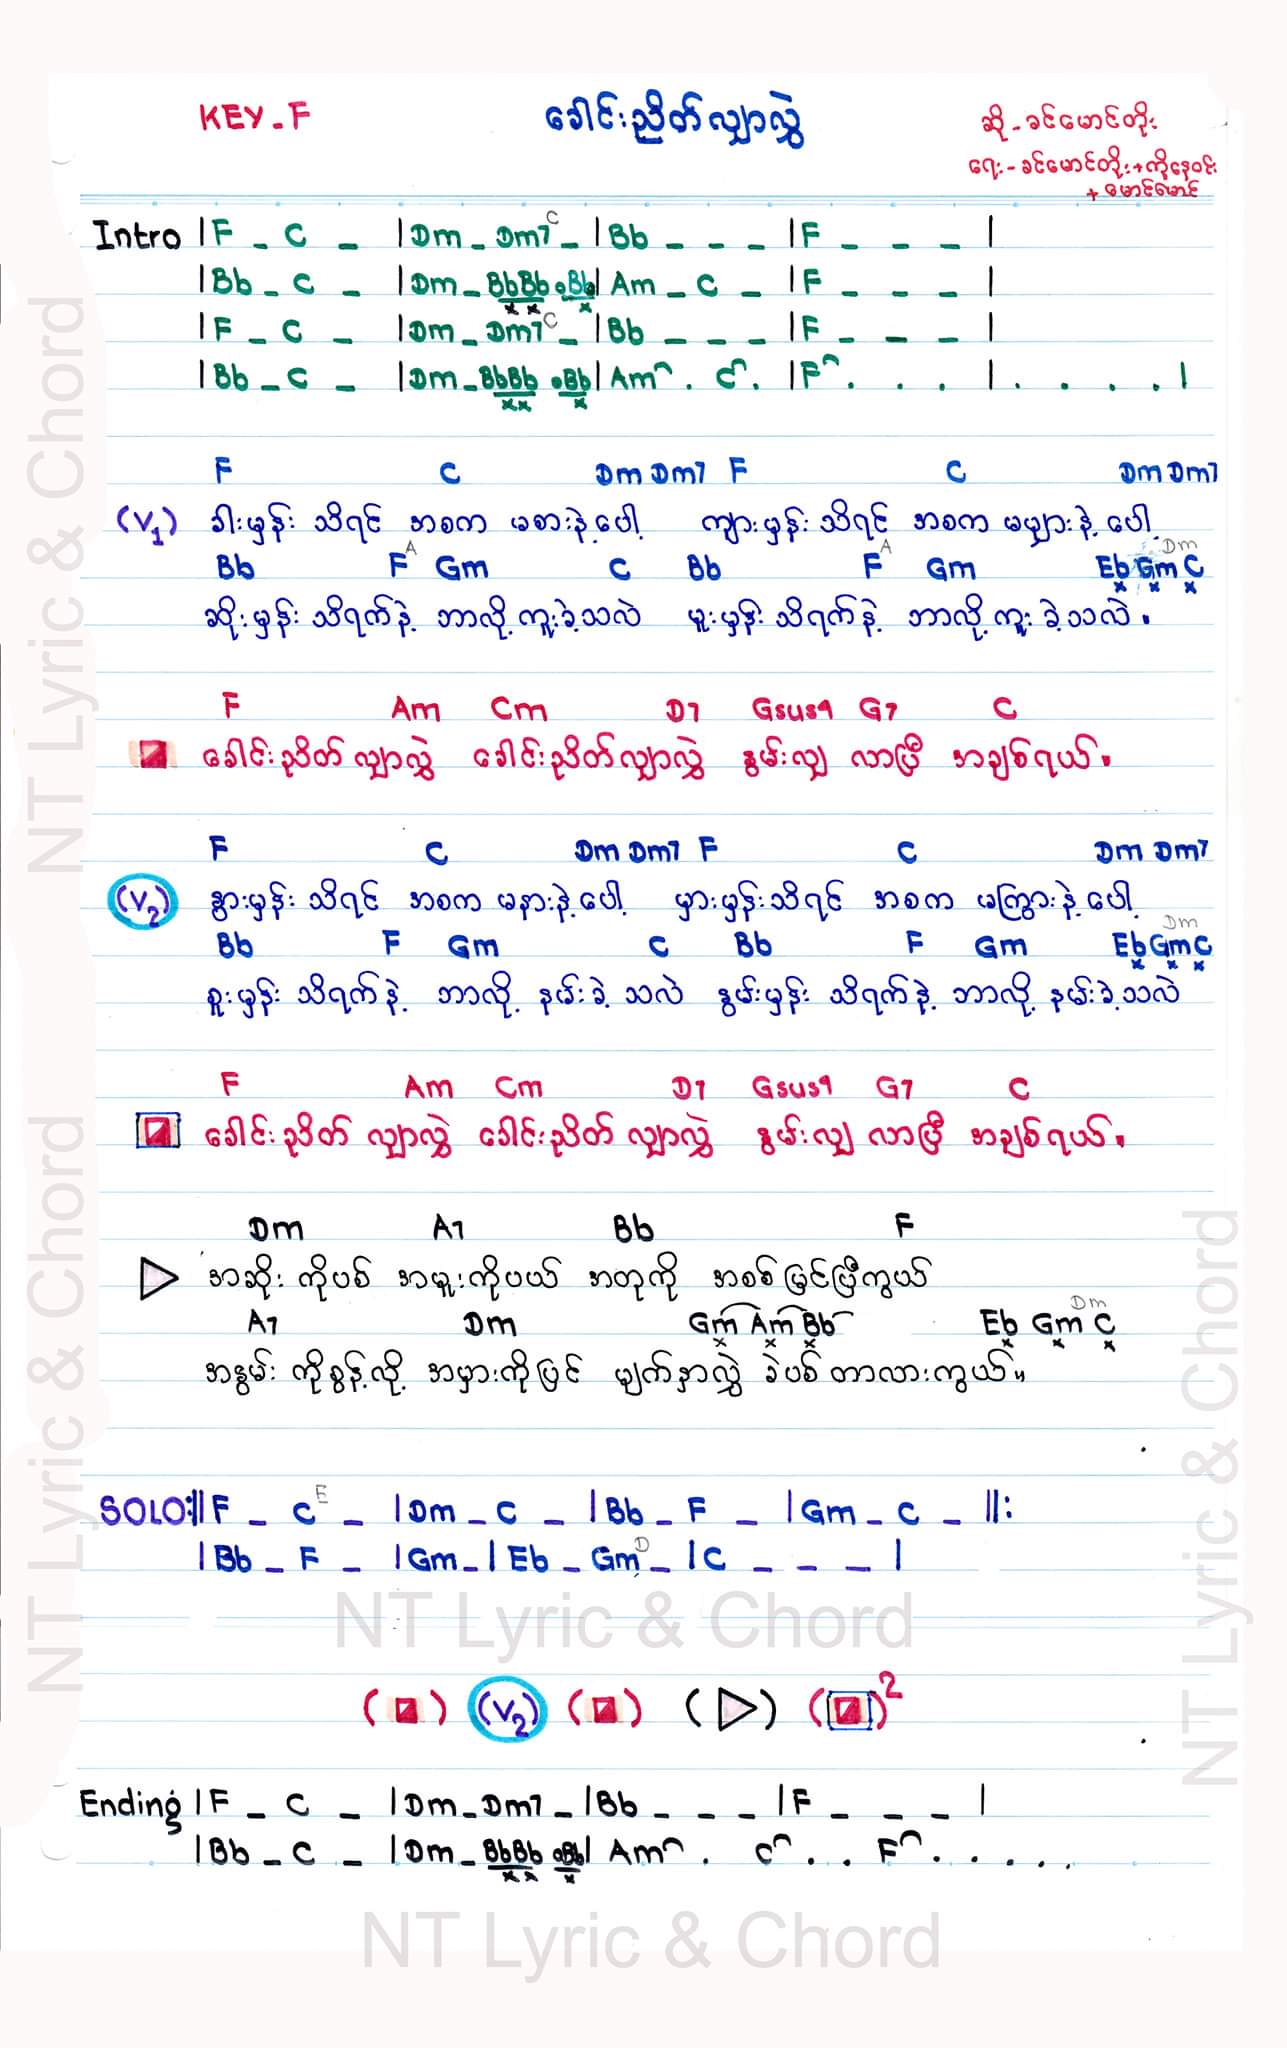 KEY-F ခေါင်းညိတ်လျှာလွှဲ ဆို - ခင်မောင်တိုး
ရေး - ခင်မောင်တိုး + ကိုနေဝင်း
+ မောင်မောင်
Intro |F _ C _ |Dm _ Dm7 C _ |Bb _ _ _ |F _ _ _ |
|Bb _ C _ |Dm _ BbBb .Bb| Am _ C _ |F _ _ _ |
|F _ C _ |Dm _ Dm7 C _ |Bb _ _ _ |F _ _ _ |
|Bb _ C _ |Dm _ BbBb .Bb| Am . C . |F . . . | . . . . |
F C Dm Dm7 F C Dm Dm7
(V1) ခါးမှန်း သိရင် အစက မစားနဲ့ပေါ့ ကျားမှန်း သိရင် အစက မမျှားနဲ့ ပေါ့
Bb F A Gm C Bb F A Gm Eb Gm Dm C
ဆိုးမှန်း သိရက်နဲ့ ဘာလို့ကူးခဲ့သလဲ မူးမှန်း သိရက်နဲ့ ဘာလို့ ကူး ခဲ့သလဲ.
F Am Cm D7 Gsus4 G7 C
ခေါင်းညိတ် လျှာလွှဲ ခေါင်းညိတ်လျှာလွှဲ နွမ်းလျှ လာပြီ အချစ်ရယ်.
F C Dm Dm7 F C Dm Dm7
(V2) နွားမှန်း သိရင် အစက မနားနဲ့ပေါ့ မှားမှန်းသိရင် အစက မကြွားနဲ့ပေါ့
Bb F Gm C Bb F Gm Eb Gm Dm C
စူးမှန်း သိရက်နဲ့ ဘာလို့ နမ်းခဲ့ သလဲ နွမ်းမှန်း သိရက်နဲ့ ဘာလို့ နမ်းခဲ့သလဲ
F Am Cm D7 Gsus4 G7 C
ခေါင်းညိတ် လျှာလွှဲ ခေါင်းညိတ် လျှာလွှဲ နွမ်းလျှ လာပြီ အချစ်ရယ်.
Dm A7 Bb F
အဆိုး ကိုပစ် အမူးကိုပယ် အတုကို အစစ်မြင်ပြီကွယ်
A7 Dm Gm Am Bb Eb Gm Dm C
အနွမ်း ကိုစွန့်လို့ အမှားကိုမြင် မျက်နှာလွှဲ ခဲပစ် တာလားကွယ်။
SOLO:||F _ C E _ |Dm _ C _ |Bb _ F _ |Gm _ C _ ||:
|Bb _ F _ |Gm _ | Eb _ Gm D _ |C _ _ _ |
( ) (V2) ( ) (▷) ( )2
Ending |F _ C _ |Dm _ Dm7 _ |Bb _ _ _ |F _ _ _ |
|Bb _ C _ |Dm _ BbBb .Bb| Am . C . . F . . . . .
NT Lyric & Chord
NT Lyric & Chord
NT Lyric & Chord
NT Lyric & Chord
NT Lyric & Chord